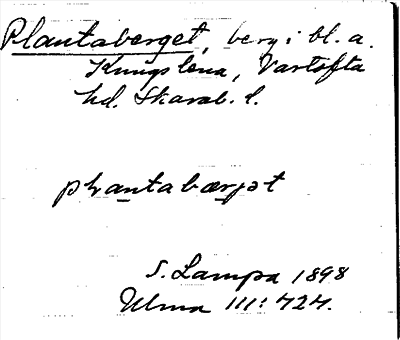 Plantaberget, berg i bl. a.
Kungslena, Vartofta
hd. Skarab. l.
plantabærjət
S. Lampa 1898
Ulma 111: 727.